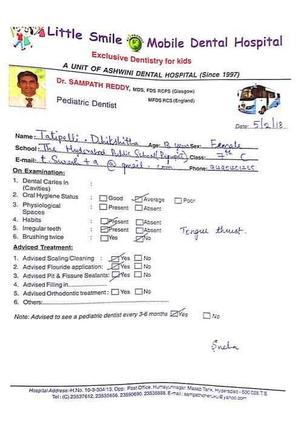 Little Smile Mobile Dental Hospital
Exclusive Dentistry for kids
A UNIT OF ASHWINI DENTAL HOSPITAL (Since 1997)
Dr. SAMPATH REDDY, MDS, FDS RCPS (Glasgow)
MFDS RCS (England)
Pediatric Dentist
Date: 5/2/13
Name: Tatipalli Age: years Sex: Female
School: The Hyderabad Public School Class: 7th C
E-mail: @gmail.com Phone:
On Examination:
1. Dental Caries in :
(Cavities)
2. Oral Hygiene Status : Good Average Poor
3. Physiological : Present Absent
Spaces
4. Habits : Present Absent Tongue thrust.
5. Irregular teeth : Present Absent
6. Brushing twice : Yes No
Adviced Treatment:
1. Advised Scaling Cleaning : Yes No
2. Advised Flouride application: Yes No
3. Advised Pit & Fissure Sealants: Yes No
4. Advised Filling in
5. Advised Orthodontic treatment : Yes No
6. Others:
Note: Advised to see a pediatric dentist every 3-6 months Yes No
Sneha
Hospital Address: H.No. 10-3-304/13, Opp: Post Office, Humayunnagar, Masab Tank, Hyderabad - 500 028.
Tel: (C) 23537612,